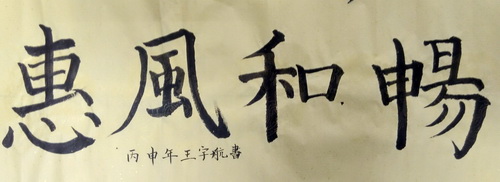 惠風和暢
丙申年王宇航書